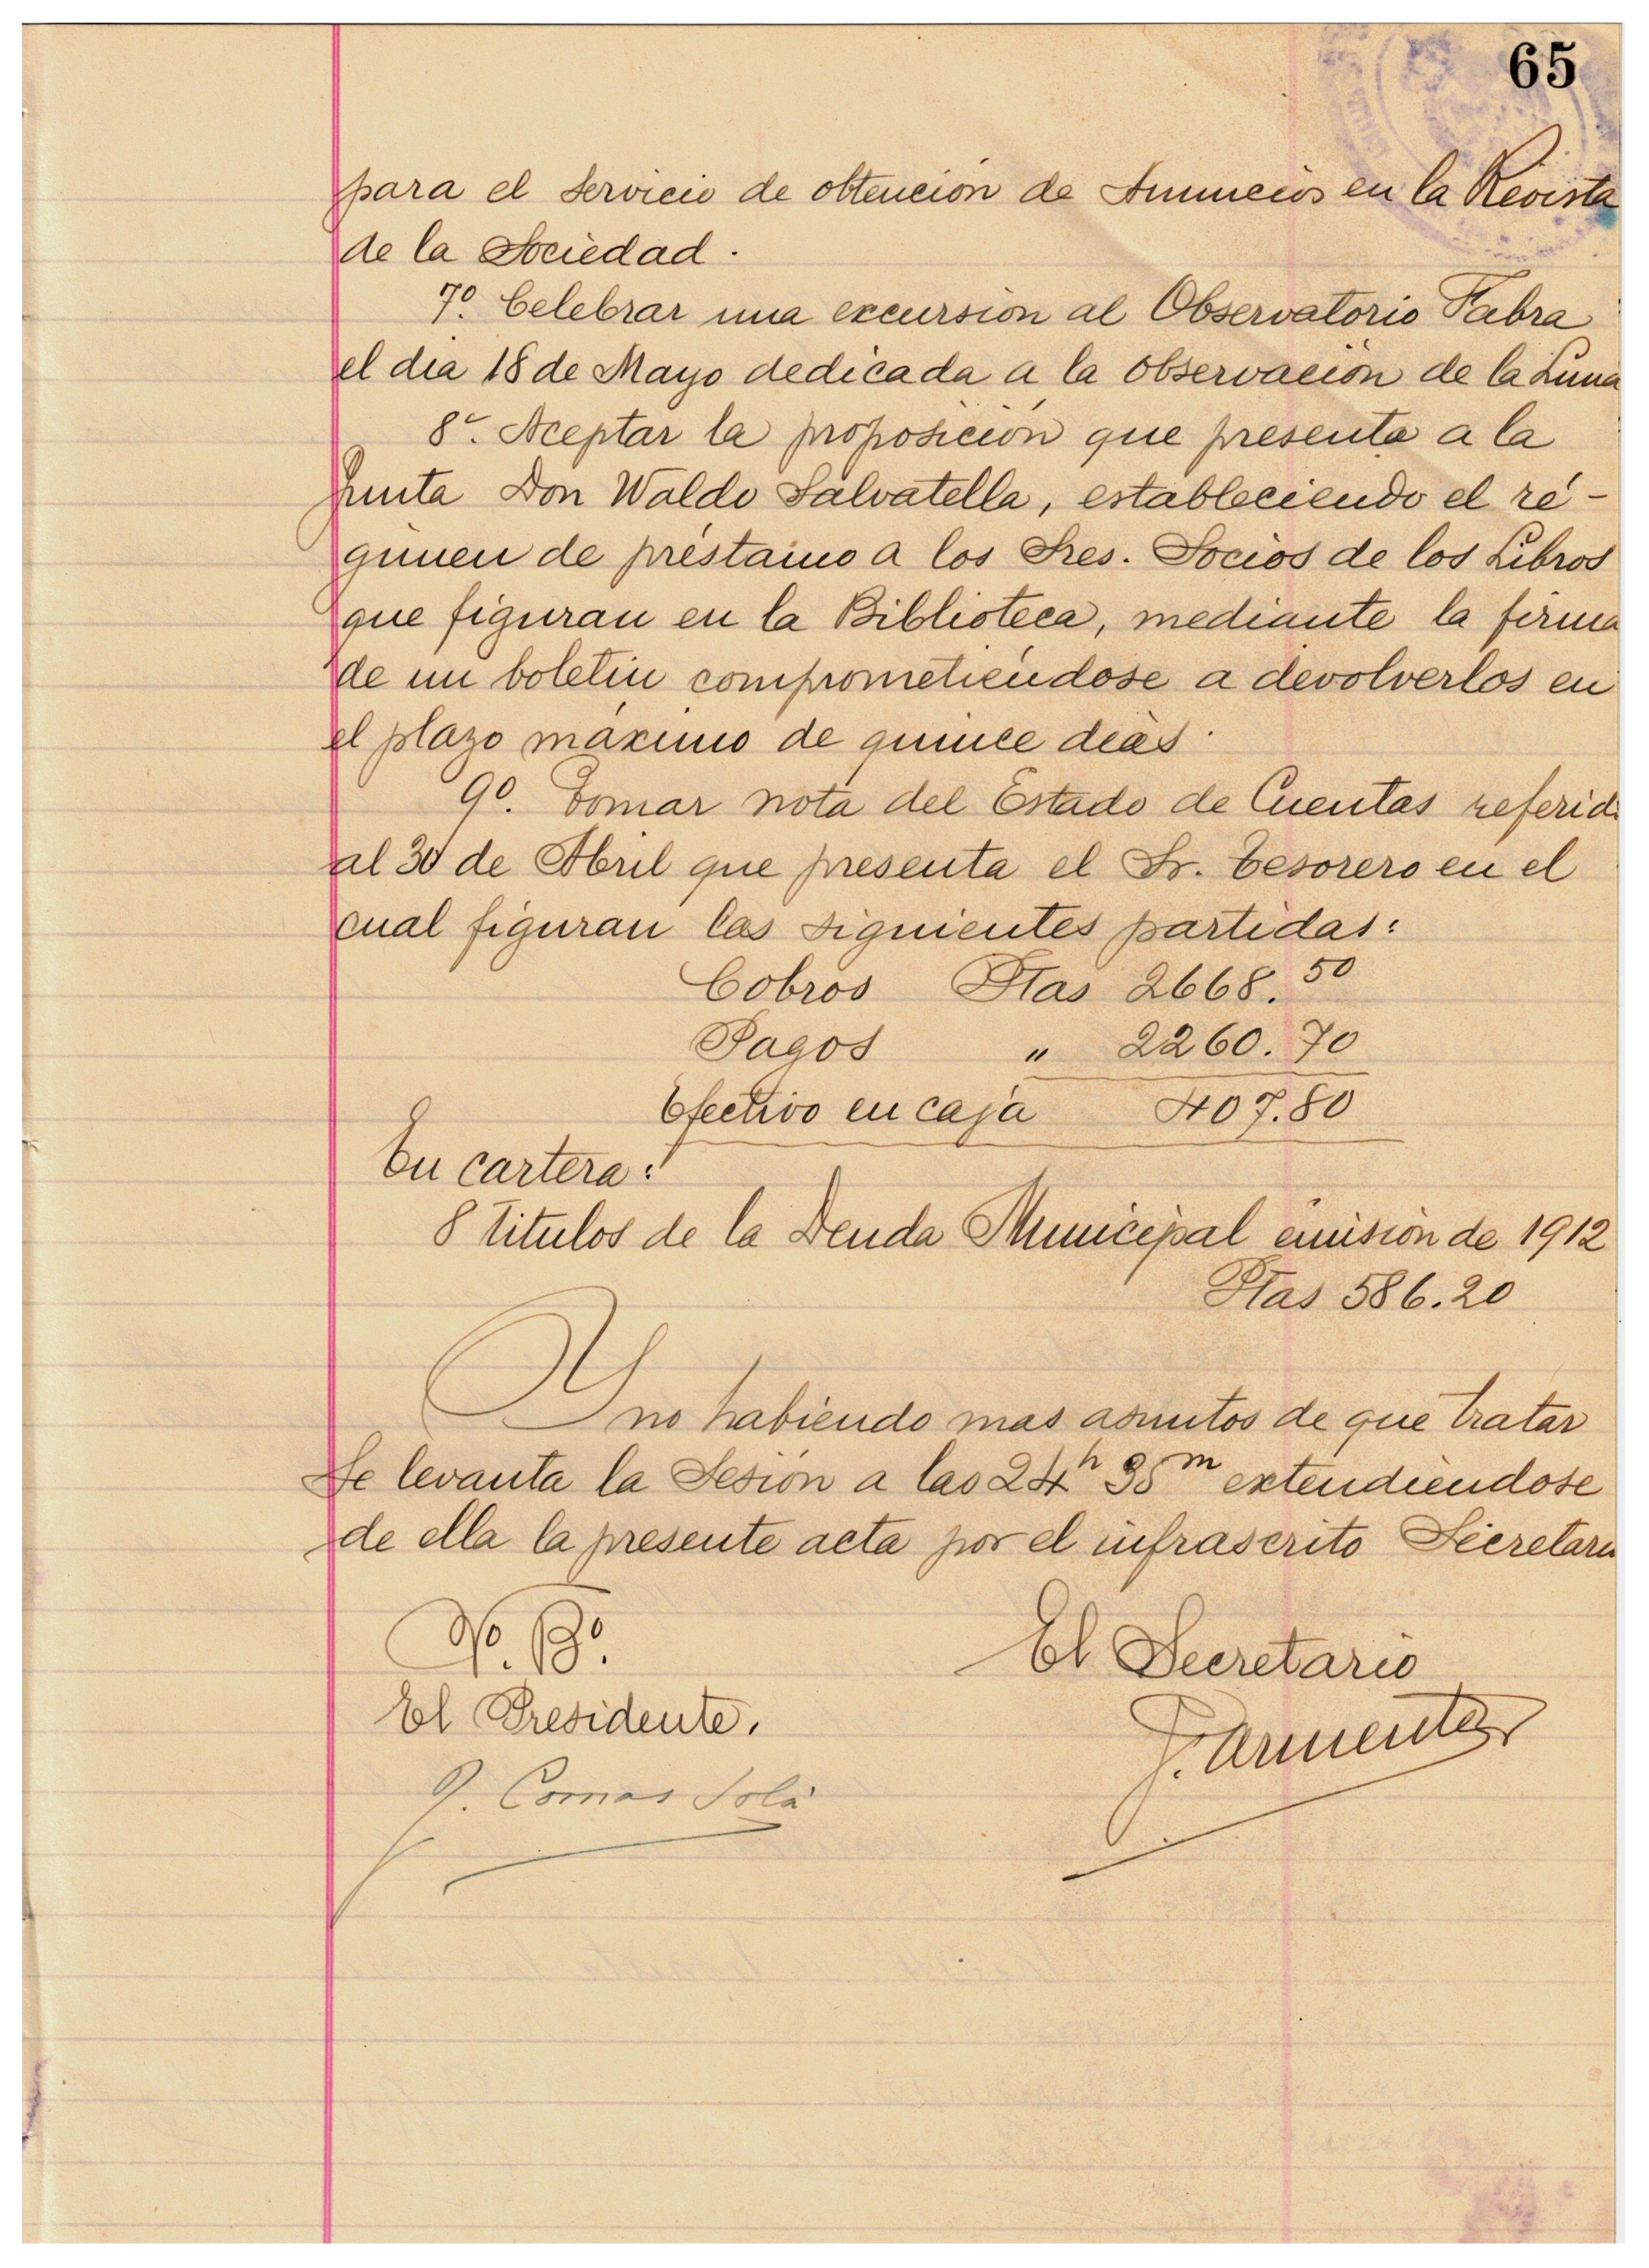 65
para el servicio de obtención de Anuncios en la Revista
de la Sociedad.
7º. Celebrar una excursión al Observatorio Fabra
el dia 18 de Mayo dedicada a la observación de la Luna
8º. Aceptar la proposición que presenta a la
Junta Don Waldo Salvatella, estableciendo el ré-
gimen de préstamo a los Sres. Socios de los Libros
que figuran en la Biblioteca, mediante la firma
de un boletin comprometiéndose a devolverlos en
el plazo máximo de quince dias.
9º. Tomar nota del Estado de Cuentas referid
al 30 de Abril que presenta el Sr. Tesorero en el
cual figuran las siguientes partidas:
Cobros Ptas 2668.50
Pagos " 2260.70
Efectivo en caja 407.80
En cartera:
8 titulos de la Deuda Municipal emisión de 1912
Ptas 586.20
Y no habiendo mas asuntos de que tratar
se levanta la Sesión a las 24h 35m extendiéndose
de ella la presente acta por el infrascrito Secretario
Vº. Bº.
El Secretario
El Presidente.
J. Armenter
J. Comas Solá